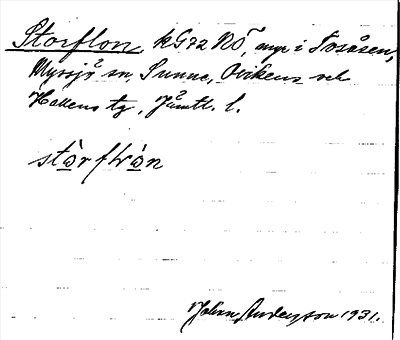 Storflon, kG72 NÖ, myr i Tosåsen,
Myssjö sn, Sunne, Ovikens och
Hallens tg, Jämtl. l.
stòrflòn
Johan Anderson 1931.